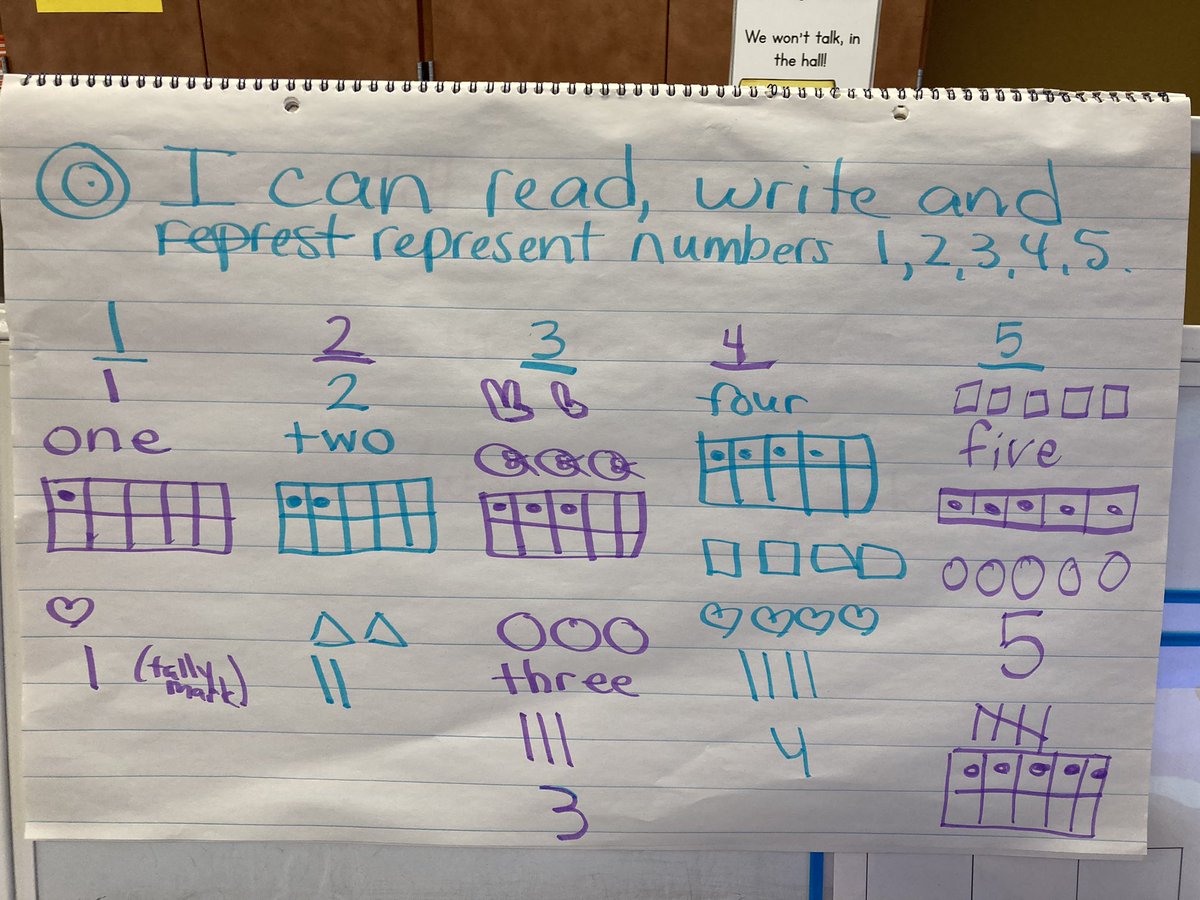 We won't talk, in
the hall!
I can read, write and
represt represent numbers 1, 2, 3, 4, 5.
1 2 3 4 5
1 2 four
one two five
1 (tally
mark)
three
5
4
3